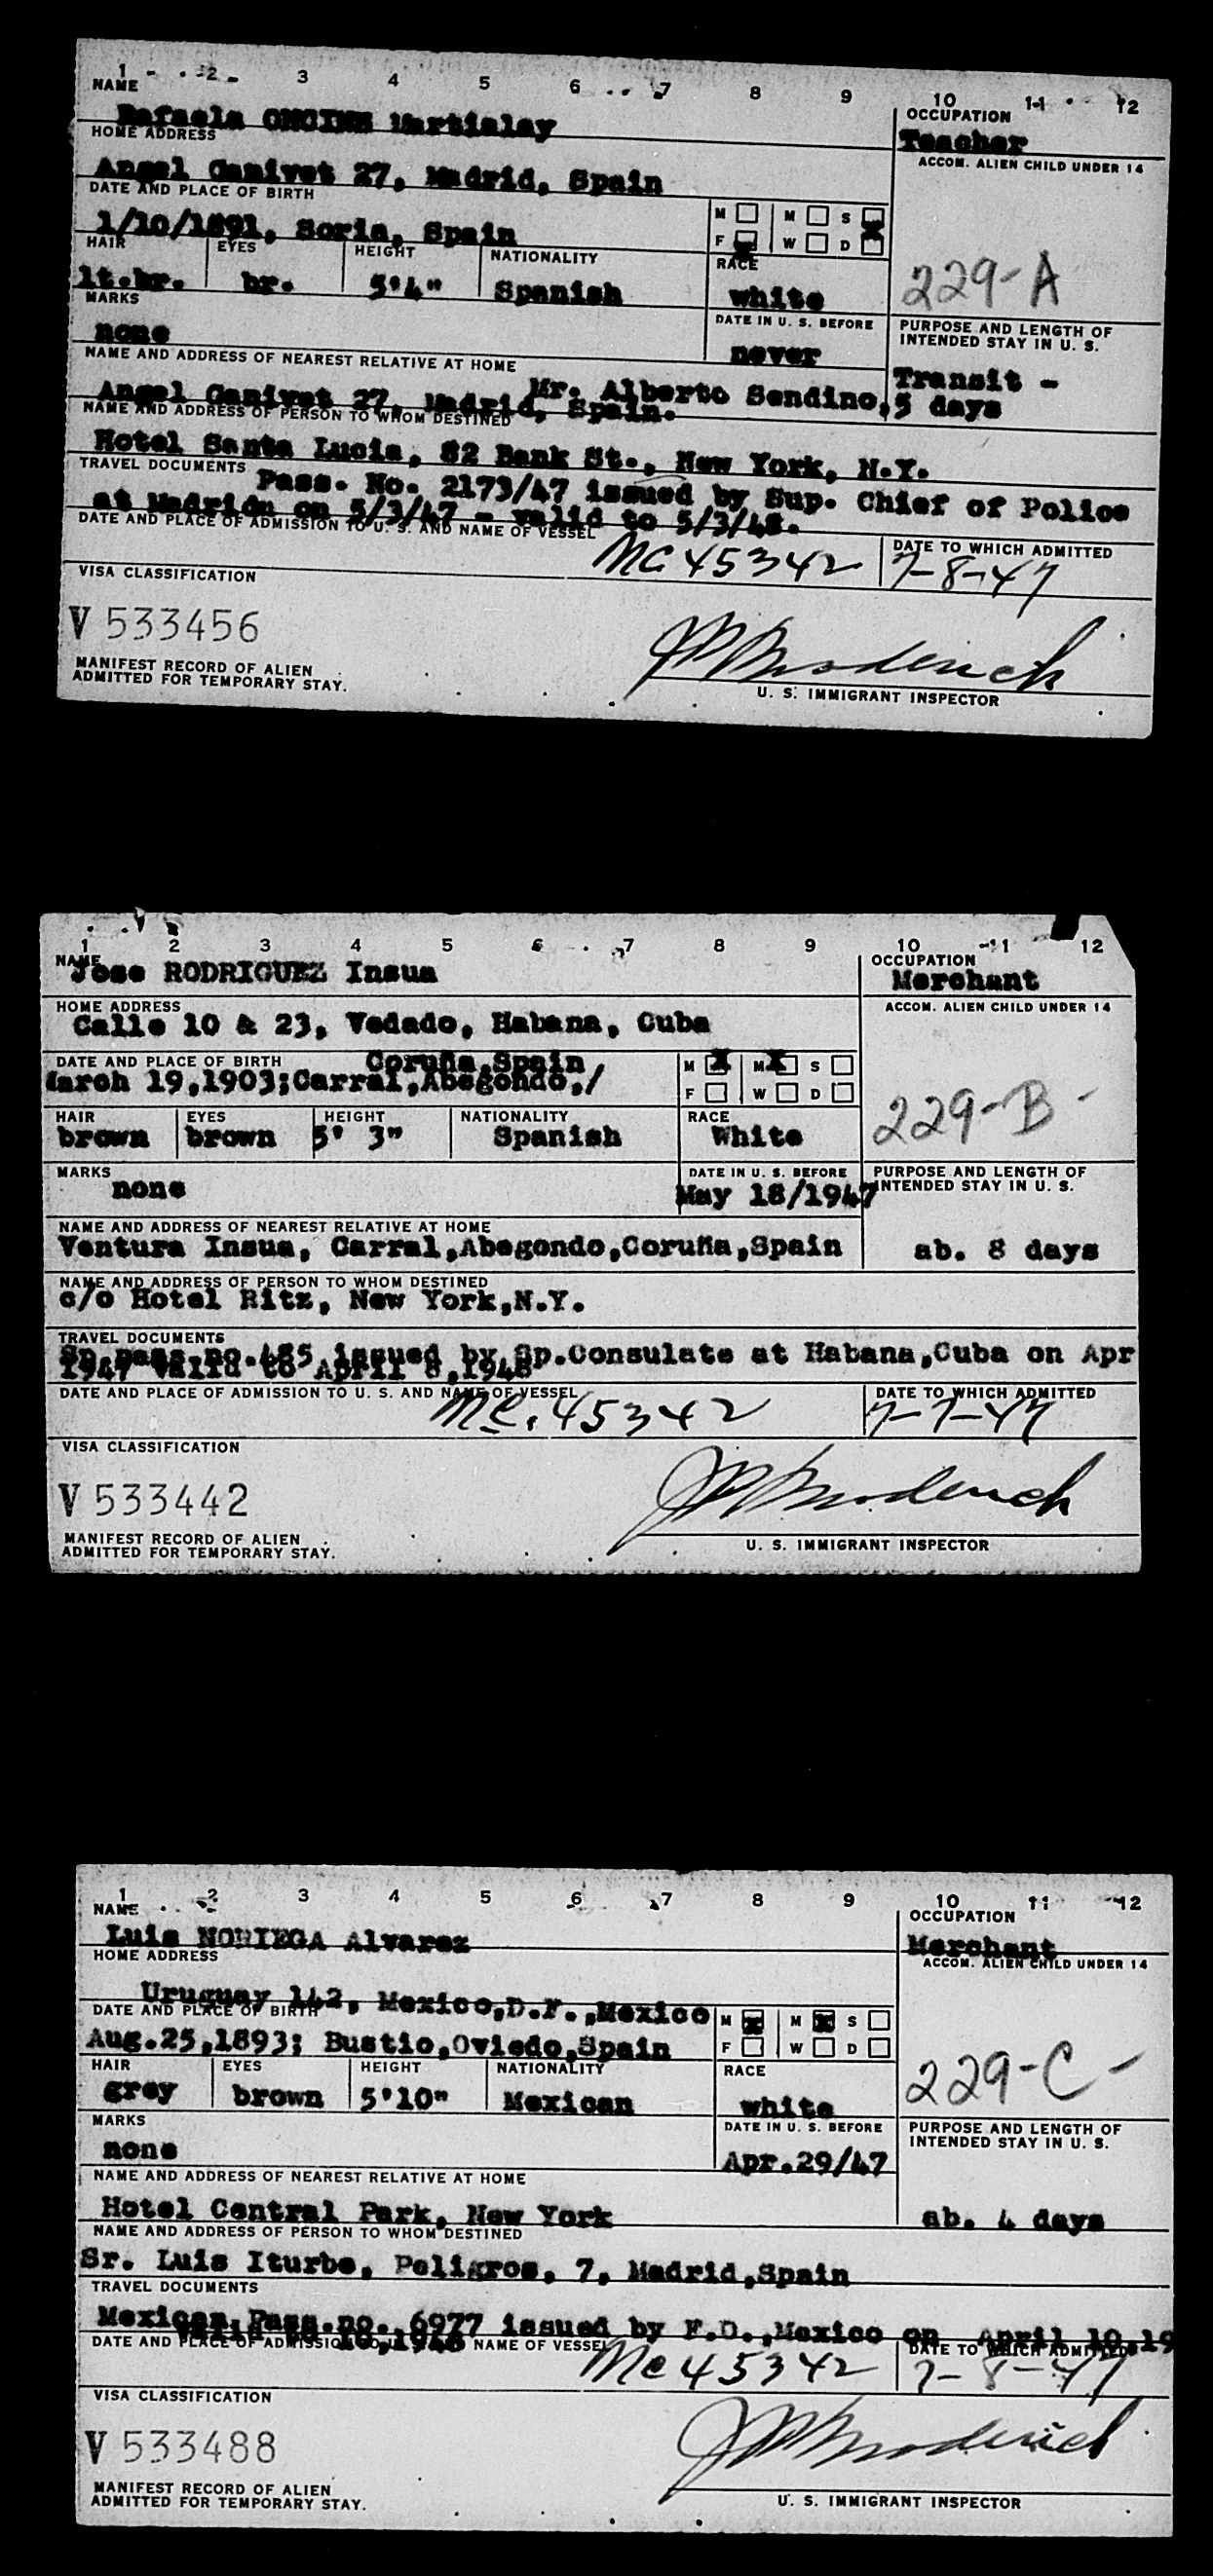 1 2 3 4 5 6 7 8 9 10 11 12
NAME
OCCUPATION
Rafaela Martialay
Teacher
HOME ADDRESS
ACCOM. ALIEN CHILD UNDER 14
Angel Ganivet 27, Madrid, Spain
DATE AND PLACE OF BIRTH
M M S
1/10/1891, Soria, Spain
F W D
HAIR EYES HEIGHT NATIONALITY RACE
229-A
lt.br. br. 5'4" Spanish white
MARKS
DATE IN U. S. BEFORE
PURPOSE AND LENGTH OF
INTENDED STAY IN U. S.
none
never
NAME AND ADDRESS OF NEAREST RELATIVE AT HOME
Transit -
Mr. Alberto Sendino, 5 days
Angel Ganivet 27, Madrid, Spain.
NAME AND ADDRESS OF PERSON TO WHOM DESTINED
Hotel Santa Lucia, 82 Bank St., New York, N.Y.
TRAVEL DOCUMENTS
Pass. No. 2173/47 issued by Sup. Chief of Police
at Madridn on 5/3/47 - valid to 5/3/48.
DATE AND PLACE OF ADMISSION TO U. S. AND NAME OF VESSEL
DATE TO WHICH ADMITTED
MC 45342 7-8-47
VISA CLASSIFICATION
V 533456
MANIFEST RECORD OF ALIEN
ADMITTED FOR TEMPORARY STAY.
U. S. IMMIGRANT INSPECTOR
1 2 3 4 5 6 7 8 9 10 11 12
NAME
OCCUPATION
Jose RODRIGUEZ Insua
Merchant
HOME ADDRESS
ACCOM. ALIEN CHILD UNDER 14
Calle 10 & 23, Vedado, Habana, Cuba
DATE AND PLACE OF BIRTH Coruña,Spain
M X M X S
March 19,1903;Carral,Abegondo,/
F W D
HAIR EYES HEIGHT NATIONALITY RACE
229-B -
brown brown 5' 3" Spanish White
MARKS
DATE IN U. S. BEFORE
PURPOSE AND LENGTH OF
INTENDED STAY IN U. S.
none
May 18/1947
NAME AND ADDRESS OF NEAREST RELATIVE AT HOME
Ventura Insua, Carral,Abegondo,Coruña,Spain ab. 8 days
NAME AND ADDRESS OF PERSON TO WHOM DESTINED
c/o Hotel Ritz, New York,N.Y.
TRAVEL DOCUMENTS
Sp.pass.no.485 issued by Sp.Consulate at Habana,Cuba on Apr
1947 valid to April 8,1948
DATE AND PLACE OF ADMISSION TO U. S. AND NAME OF VESSEL
DATE TO WHICH ADMITTED
Mc. 45342 7-7-47
VISA CLASSIFICATION
V 533442
MANIFEST RECORD OF ALIEN
ADMITTED FOR TEMPORARY STAY.
U. S. IMMIGRANT INSPECTOR
1 2 3 4 5 6 7 8 9 10 11 12
NAME
OCCUPATION
Luis NORIEGA Alvarez
Merchant
HOME ADDRESS
ACCOM. ALIEN CHILD UNDER 14
Uruguay 142, Mexico,D.F.,Mexico
DATE AND PLACE OF BIRTH
M X M X S
Aug.25,1893; Bustio,Oviedo,Spain
F W D
HAIR EYES HEIGHT NATIONALITY RACE
229-C -
grey brown 5'10" Mexican white
MARKS
DATE IN U. S. BEFORE
PURPOSE AND LENGTH OF
INTENDED STAY IN U. S.
none
Apr.29/47
NAME AND ADDRESS OF NEAREST RELATIVE AT HOME
Hotel Central Park, New York ab. 4 days
NAME AND ADDRESS OF PERSON TO WHOM DESTINED
Sr. Luis Iturbe, Peligros, 7, Madrid,Spain
TRAVEL DOCUMENTS
Mexican Pass.no. 6977 issued by F.D.,Mexico on April 10,19
10,1948
DATE AND PLACE OF ADMISSION TO U. S. AND NAME OF VESSEL
DATE TO WHICH ADMITTED
Mc 45342 7-8-47
VISA CLASSIFICATION
V 533488
MANIFEST RECORD OF ALIEN
ADMITTED FOR TEMPORARY STAY.
U. S. IMMIGRANT INSPECTOR